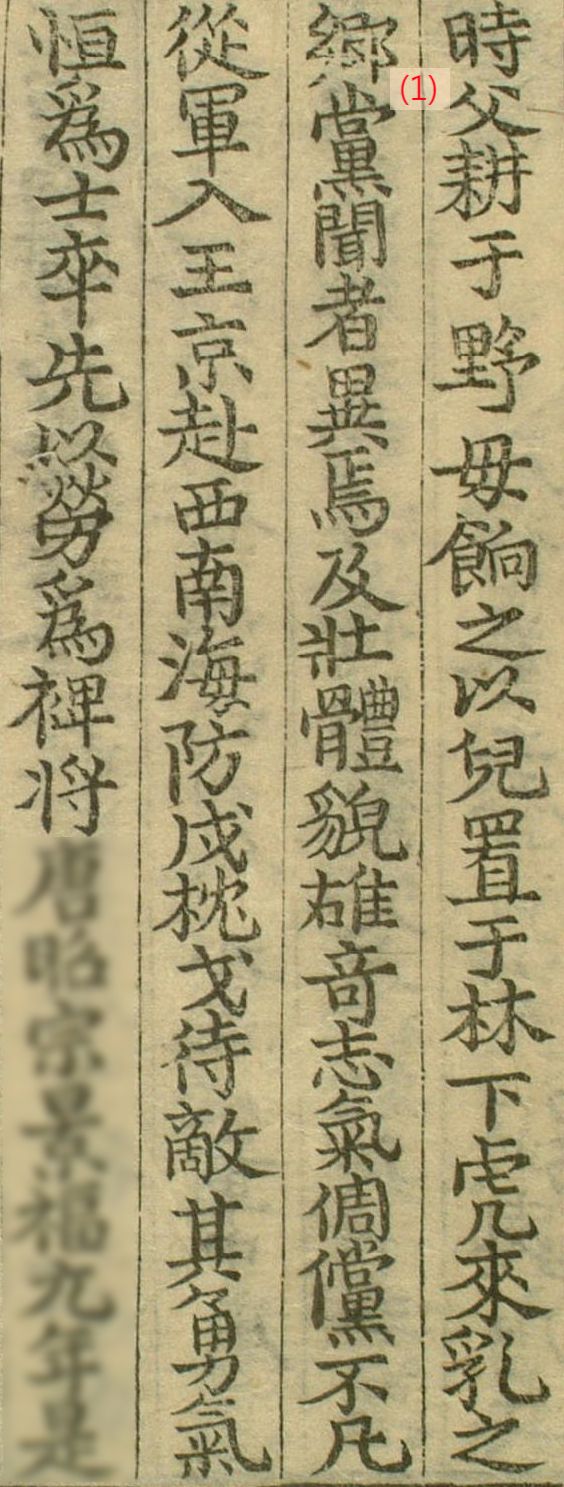 時父耕于野母餉之以兒置于林下虎來乳之
(1)
鄕黨聞者異焉及壯體貌雄竒志氣倜儻不凡
從軍入王京赴西南海防戍枕戈待敵其勇氣
恒爲士卒先以勞爲裨將